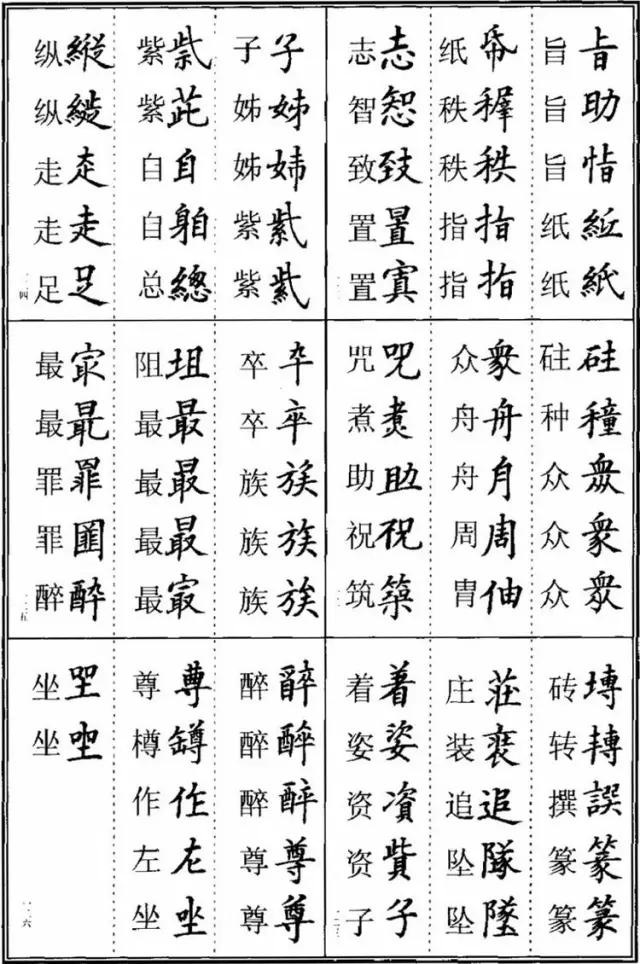 旨 㫖
旨 助
旨 恉
纸 𥿄
纸 紙
纸 帋
秩 穉
秩 秩
指 指
指 指
志 志
智 恕
致 致
置 置
置 寘
砫 硅
种 穜
众 衆
众 衆
众 衆
众 衆
舟 舟
舟 月
周 周
胄 伷
咒 咒
煮 煑
助 助
祝 祝
筑 築
砖 塼
转 轉
撰 譔
篆 篆
篆 篆
庄 莊
装 裝
追 追
坠 隊
坠 墜
着 着
姿 姿
资 資
资 貲
子 子
子 子
姊 姊
姊 姉
紫 紫
紫 紫
紫 紫
紫 茈
自 自
自 躬
总 總
纵 縱
纵 縱
走 赱
走 走
足 足
卒 卆
卒 卒
族 族
族 族
族 族
阻 坥
最 最
最 最
最 最
最 㝡
最 㝡
最 最
罪 罪
罪 圛
醉 酔
醉 辭
醉 醉
醉 醉
尊 尊
尊 尊
尊 尊
樽 罇
作 作
左 左
坐 坐
坐 坐
坐 坐